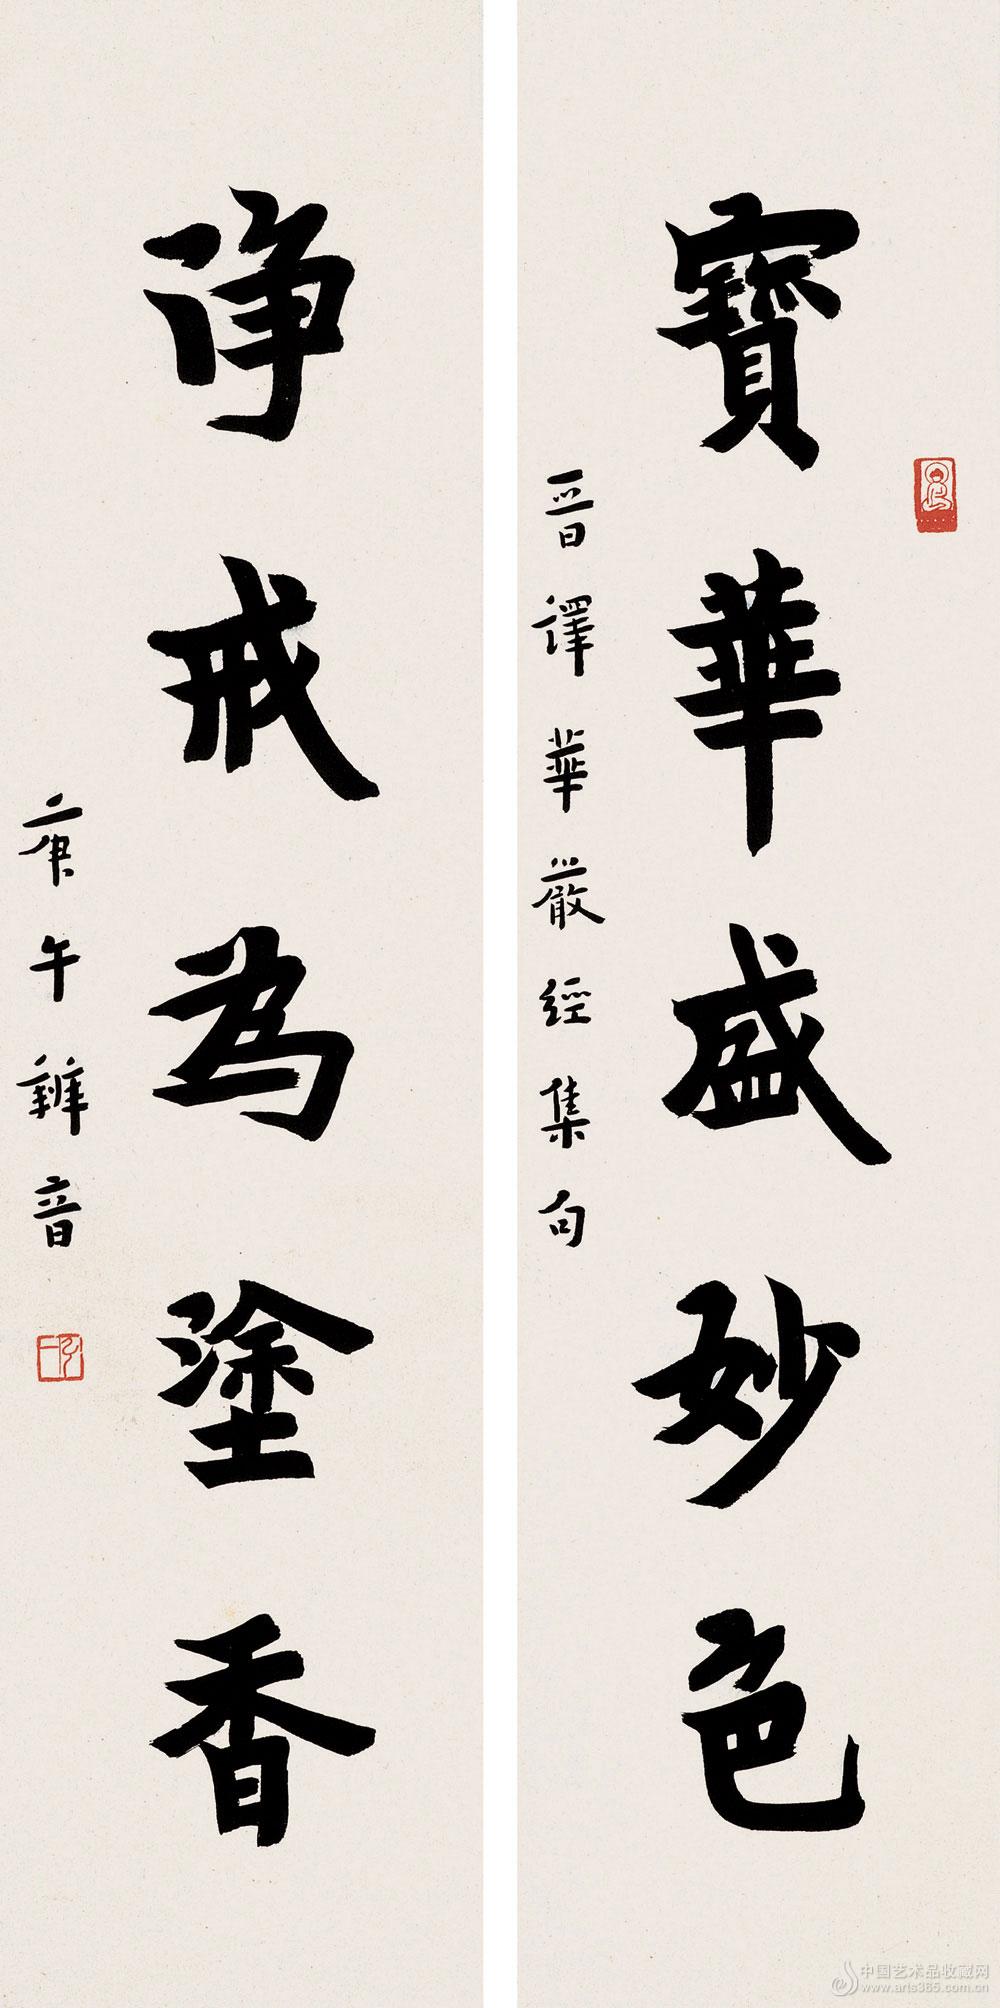 寶華盛妙色
晉譯華嚴經集句
淨戒為塗香
庚午辦音
弘一
中国艺术品收藏网
www.arts365.com.cn